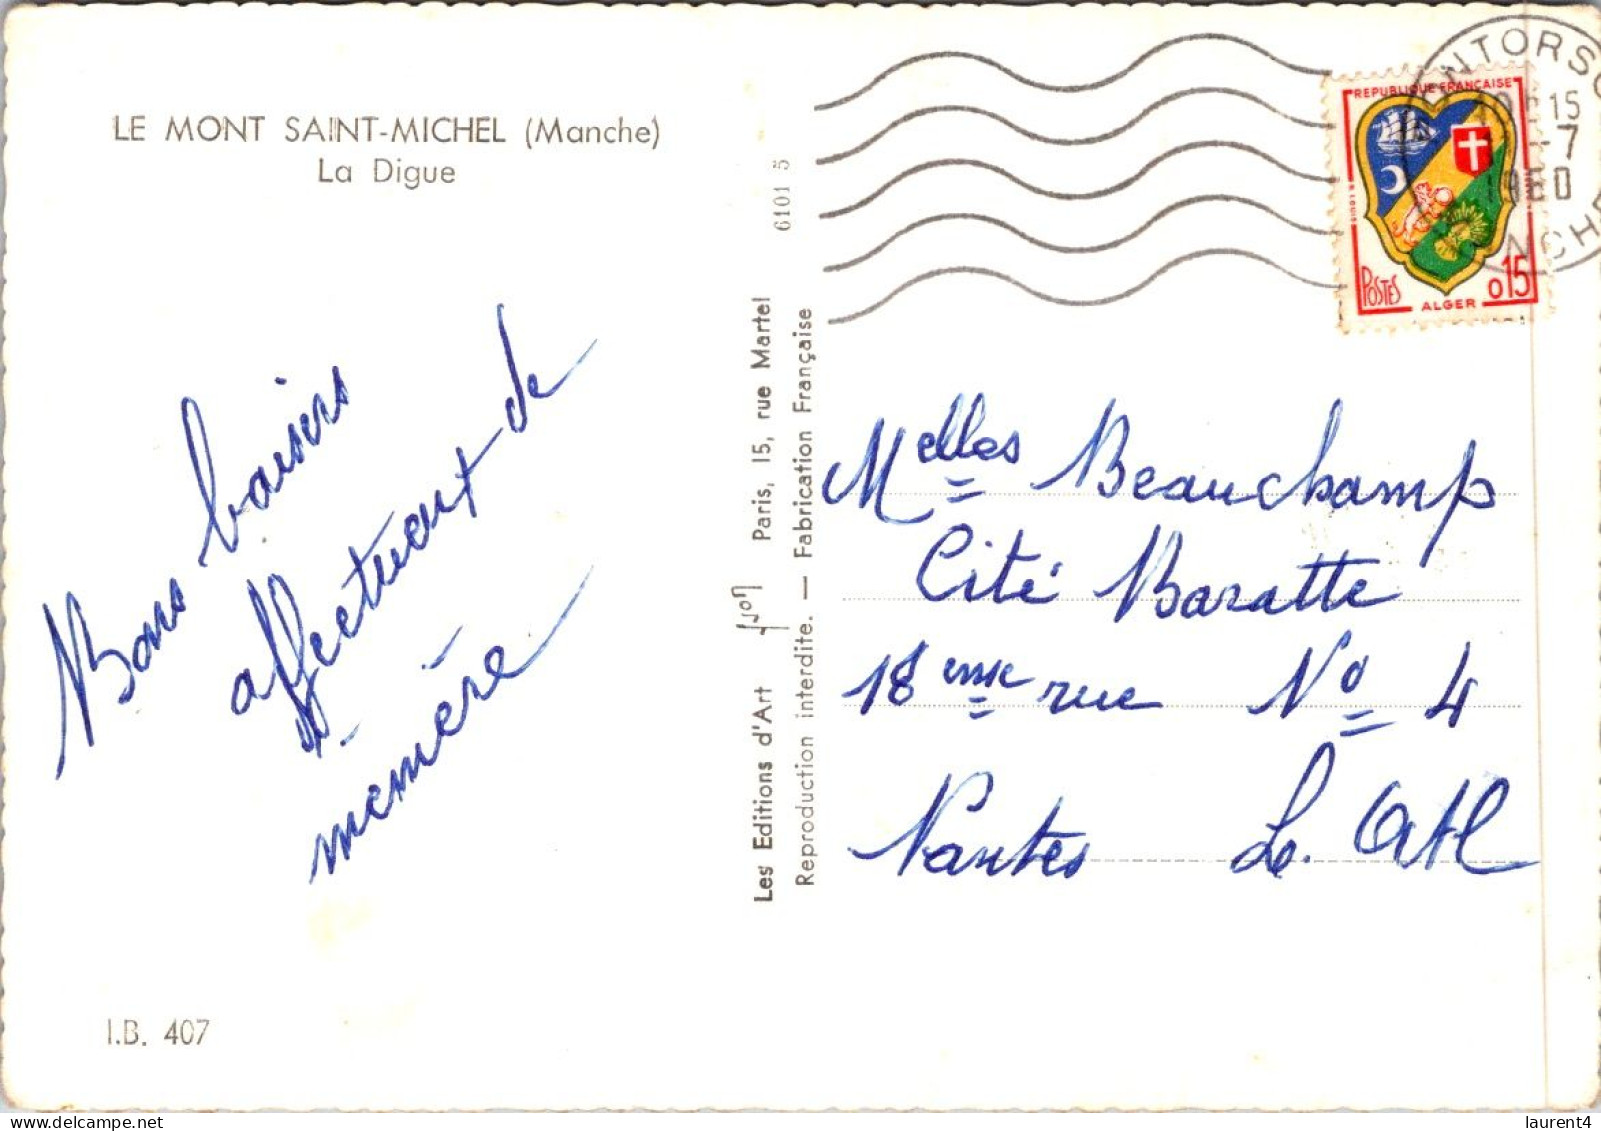 LE MONT SAINT-MICHEL (Manche)
La Digue
Bons baisers
affectueux de
mémère
I.B. 407
Les Editions d'Art Yvon Paris, 15, rue Martel
Reproduction interdite. — Fabrication Française
6101 5
REPUBLIQUE FRANÇAISE
POSTES
ALGER
0,15
15
-7
1960
Melles Beauchamp
Cité Baratte
18 eme rue No 4
Nantes L. Atl
laurent4